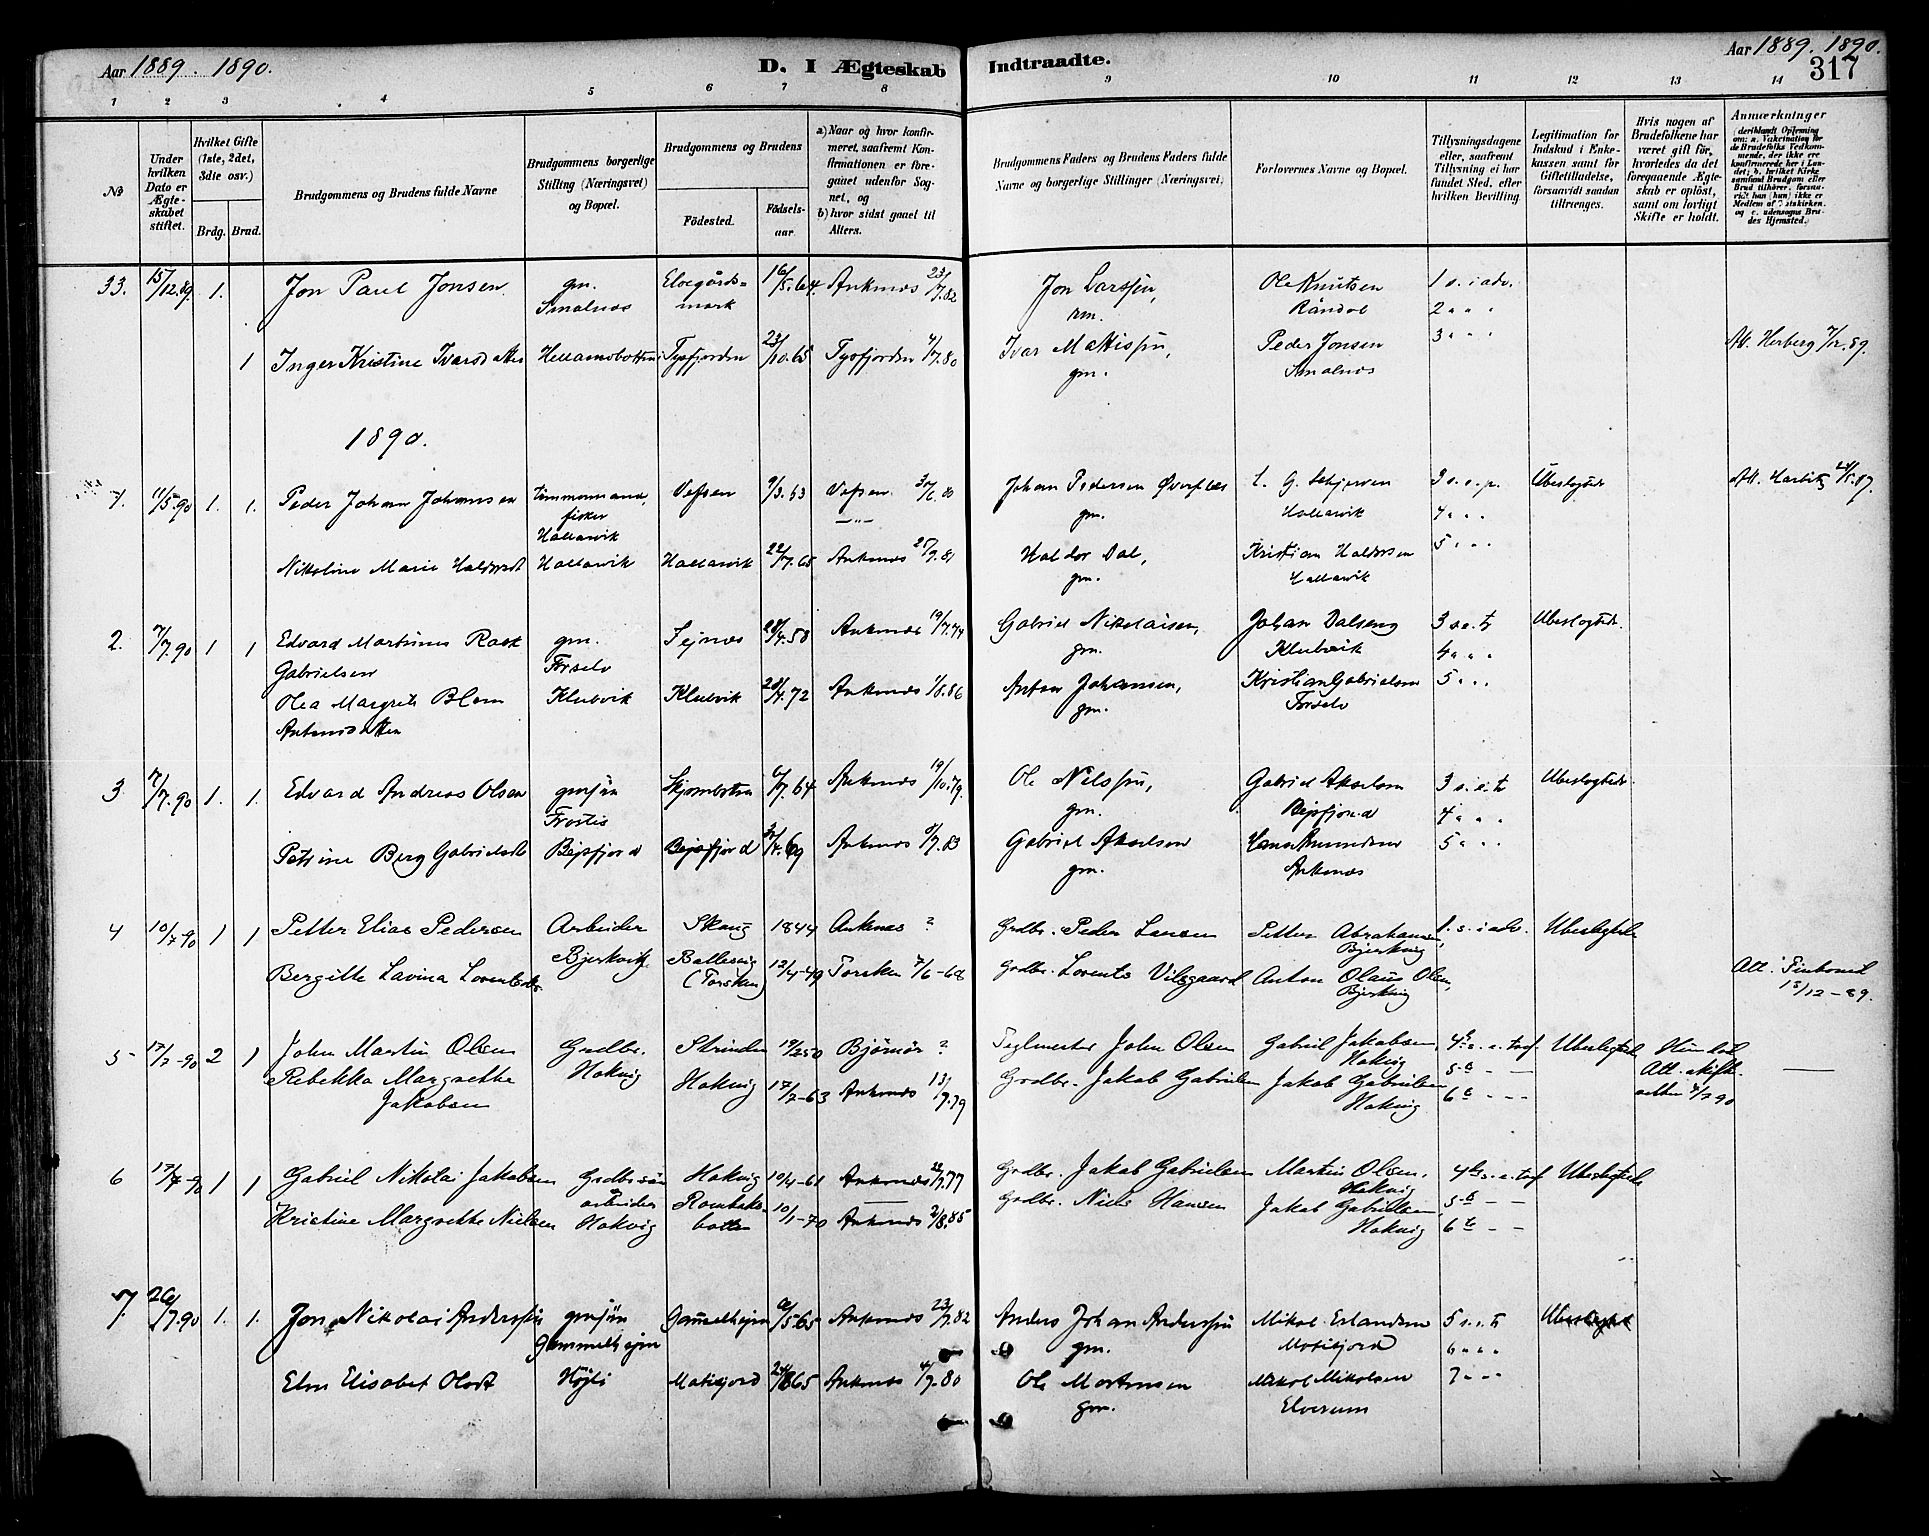 Aar 1889. 1890.
D. I Ægteskab Indtraadte.
Aar 1889. 1890.
317
1 2 3 4 5 6 7 8 9 10 11 12 13 14
No
Under hvilken Dato er Ægteskabet stiftet.
Hvilket Gifte (1ste, 2det, 3die osv.)
Brdg. Brud.
Brudgommens og Brudens fulde Navne
Brudgommens borgerlige Stilling (Næringsvei) og Bopæl.
Brudgommens og Brudens
Födested.
Födselsaar.
a) Naar og hvor konfirmeret, saafremt Konfirmationen er foregaaet udenfor Sognet, og
b) hvor sidst gaaet til Alters.
Brudgommens Faders og Brudens Faders fulde Navne og borgerlige Stillinger (Næringsvei)
Forlovernes Navne og Bopæl.
Tillysningsdagene eller, saafremt Tillysning ei har fundet Sted, efter hvilken Bevilling.
Legitimation for Indskud i Enkekassen samt for Giftetilladelse, forsaavidt saadan tiltrænges.
Hvis nogen af Brudefolkene har været gift för, hvorledes da det foregaaende Ægteskab er oplöst, samt om lovligt Skifte er holdt.
Anmærkninger
33. 15/12.89 1. Jon Paul Jonsen gm. Smalnes Elvegårdsmark 16/5.64 Ankenes 23/7.82 Jon Larssøn, rm. Ole Knutsen Råndal 1 s. i adv.
2 " " "
1 Inger Kristine Ivarsdatter Hellamobotten Tysfjorden 23/10.65 Tysfjorden 4/7.80 Ivar Mattissøn, gm. Peder Jonsen Smalnes 3 " " " Att. Herberg 7/12.89.
1890.
1. 11/5.90 1. 1. Peder Johan Johansen Tømmermand, fisker Hallarvik Vefsen 9/3.53 Vefsen Johan Pedersen gm. Hallarvik 3 s. e. p. Ubeslegtede
4 " "
Nikoline Marie Haldorsdt Hallarvik Hallarvik 22/7.65 Ankenes 25/9.81 Haldor Dal, gm. Kristian Haldorsen Hallarvik 5 " "
2. 7/7.90 1 1 Edvard Martinus Rask Gabrielsen gm. Forselv Sejnes 28/4.58 Ankenes 19/7.74 Gabriel Nikolaisen, gm. Johan Dalseng Klubvik 3 s. e. tr Ubeslegtede.
4 " "
Olea Margrete Blom Antonsdatter Klubvik Klubvik 28/4.72 Ankenes 1/8.86 Anton Johansen, gm. Kristian Gabrielsen Forselv 5 " "
3 7/7.90 1. 1. Edvard Andreas Olsen gmsøn Frostis Skjombotn 6/7.64 Ankenes 19/10.79. Ole Nilssøn, gm. Gabriel Akselsen Bejsfjord 3 s. e. tr Ubeslegtede.
4 " "
Petrine Berg Gabrielsdt Bejsfjord Bejsfjord Ankenes 8/7.83 Gabriel Akselsen gm. Hans Amundsen Ankenes 5 " "
4 10/7-90 1 1 Petter Elias Pedersen Arbeider Bjerkvik Skaug 1844 Ankenes ? Grdbr. Peder Larsen Petter Abrahamsen, Bjerkvig 1. s. i adv. Ubeslegtede
Bergitte Lavina Lorentsdtr. Ballesvig (Torsken) 12/4-49 Torsken 7/6-68 Grdbr. Lorents Vilsgaard Anton Olaus Olsen, Bjerkvig Att. Finboned 15/12-89.
5 17/7-90 2 1 John Martin Olsen Grdbr. Hakvig Strinden 19/2 50 Bjørnør ? Teglmester John Olsen Gabriel Jakobsen, Hakvig 4de s. e. tref. Ubeslegtede
Rebekka Margrethe Jakobsen Hakvig 17/2-63 Ankenes 13/7.79 Grdbr. Jakob Gabrielsen Jakob Gabrielsen Hakvig 5te - -
6te - -
6 17/7-90 1 1 Gabriel Nikolai Jakobsen Grdbrsøn arbeider Hakvig Hakvig 10/4-61 Ankenes Grdbr. Jakob Gabrielsen Martin Olsen, Hakvig 4de s. e. tref Ubeslegtede
Kristine Margrethe Nielsen Rombaksbotten 10/1-70 Ankenes 2/8.85 Grdbr. Niels Hansen Jakob Gabrielsen, Hakvig 5te - -
6te - -
7. 20/7.90 1. 1. Jon Nikolai Anderssøn gmsøn Gammelhejm Gammelhejm 6/5.65 Ankenes 23/7.82 Anders Johan Anderssøn gm. Mikal Erlandsen Matifjord 5 s. e. tr Ubeslegtet
6 " "
Elen Elisabet Olsdt Højli Matifjord Ankenes 4/7.80 Ole Mortensen gm. Mikal Mikalsen Elverum 7 " "